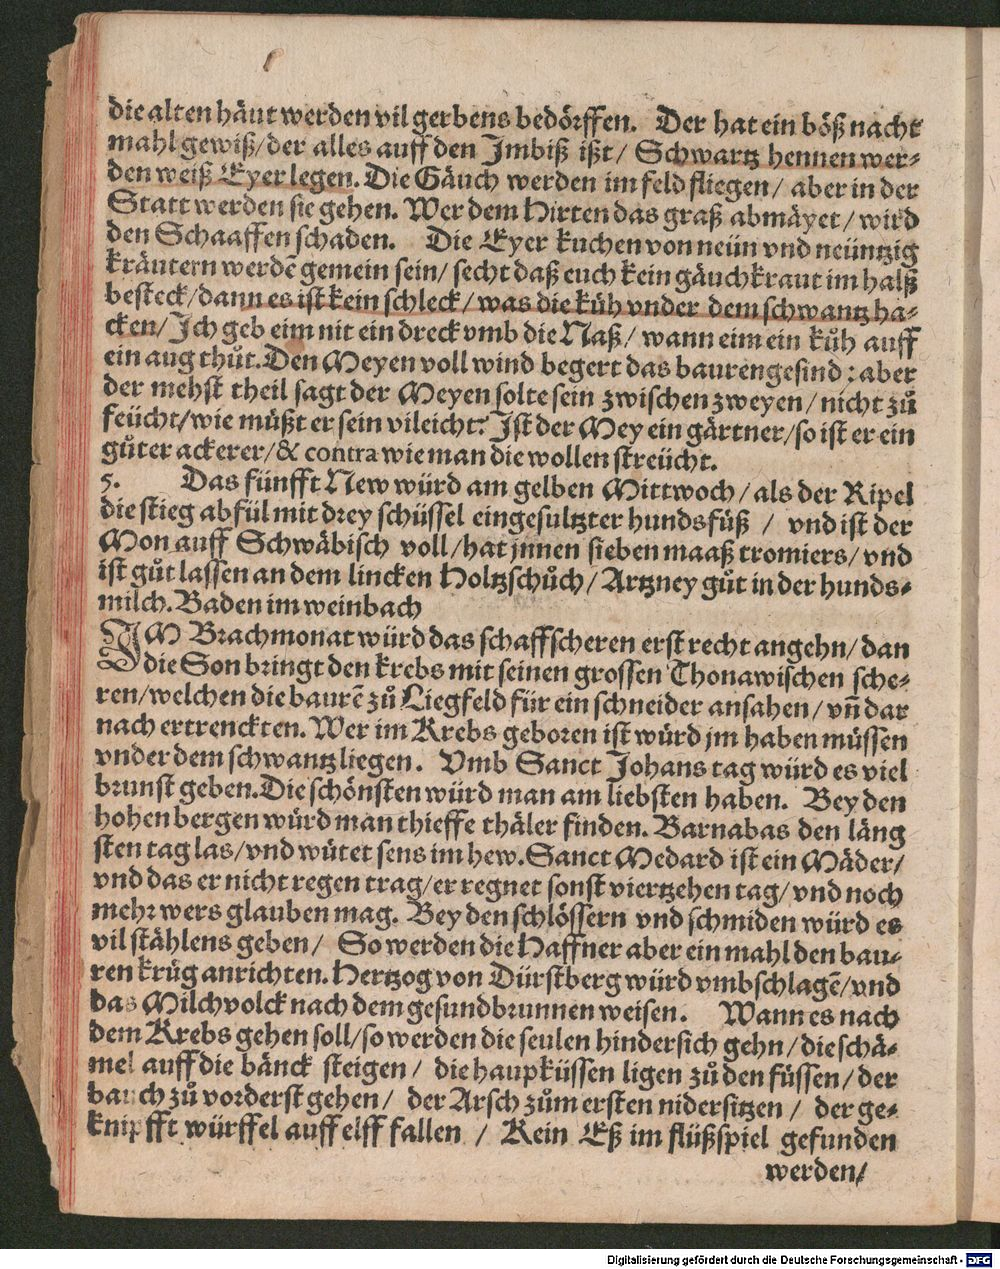 die alten häut werden vil gerbens bedörffen. Der hat ein böß nacht
mahl gewiß/ der alles auff den Imbiß ißt/ Schwartz hennen wer-
den weiß Eyer legen. Die Gäuch werden im feld fliegen/ aber in der
Statt werden sie gehen. Wer dem Hirten das graß abmäyet/ wird
den Schaaffen schaden. Die Eyer kuchen von neün vnd neüntzig
kräutern werdē gemein sein/ secht daß euch kein gäuchkraut im halß
besteck/ dann es ist kein schleck/ was die küh vnder dem schwantz ha-
cken/ Ich geb eim nit ein dreck vmb die Naß/ wann eim ein kůh auff
ein aug thůt. Den Meyen voll wind begert das baurengesind: aber
der mehst theil sagt der Meyen solte sein zwischen zweyen/ nicht zů
feücht/ wie müßt er sein vileicht? Ist der Mey ein gärtner/ so ist er ein
gůter ackerer/ & contra wie man die wollen streücht.
5. Das fünfft New würd am gelben Mittwoch/ als der Ripel
die stieg abfül mit drey schüssel eingesultzter hundsfüß / vnd ist der
Mon auff Schwäbisch voll/ hat jnnen sieben maaß tromiers/ vnd
ist gůt lassen an dem lincken Holtzschůch/ Artzney gůt in der hunds-
milch. Baden im weinbach
IM Brachmonat würd das schaffscheren erst recht angehn/ dan
die Son bringt den krebs mit seinen grossen Thonawischen sche-
ren/ welchen die baurē zů Liegfeld für ein schneider ansahen/ vñ dar
nach ertrenckten. Wer im Krebs geboren ist würd jm haben müssen
vnder dem schwantz liegen. Vmb Sanct Johans tag würd es viel
brunst geben. Die schönsten würd man am liebsten haben. Bey den
hohen bergen würd man thieffe thäler finden. Barnabas den läng
sten tag las/ vnd wütet sens im hew. Sanct Medard ist ein Mäder/
vnd das er nicht regen trag/ er regnet sonst viertzehen tag/ vnd noch
mehr wers glauben mag. Bey den schlössern vnd schmiden würd es
vil stählens geben/ So werden die Haffner aber ein mahl den bau-
ren krüg anrichten. Hertzog von Dürstberg würd vmbschlagē/ vnd
das Milchvolck nach dem gesundbrunnen weisen. Wann es nach
dem Krebs gehen soll/ so werden die seulen hindersich gehn/ die schä-
mel auff die bänck steigen/ die haupküssen ligen zů den füssen/ der
bauch zů vorderst gehen/ der Arsch zům ersten nidersitzen/ der ge-
knipfft würffel auff elff fallen / Kein Eß im flüßspiel gefunden
werden/
Digitalisierung gefördert durch die Deutsche Forschungsgemeinschaft - DFG